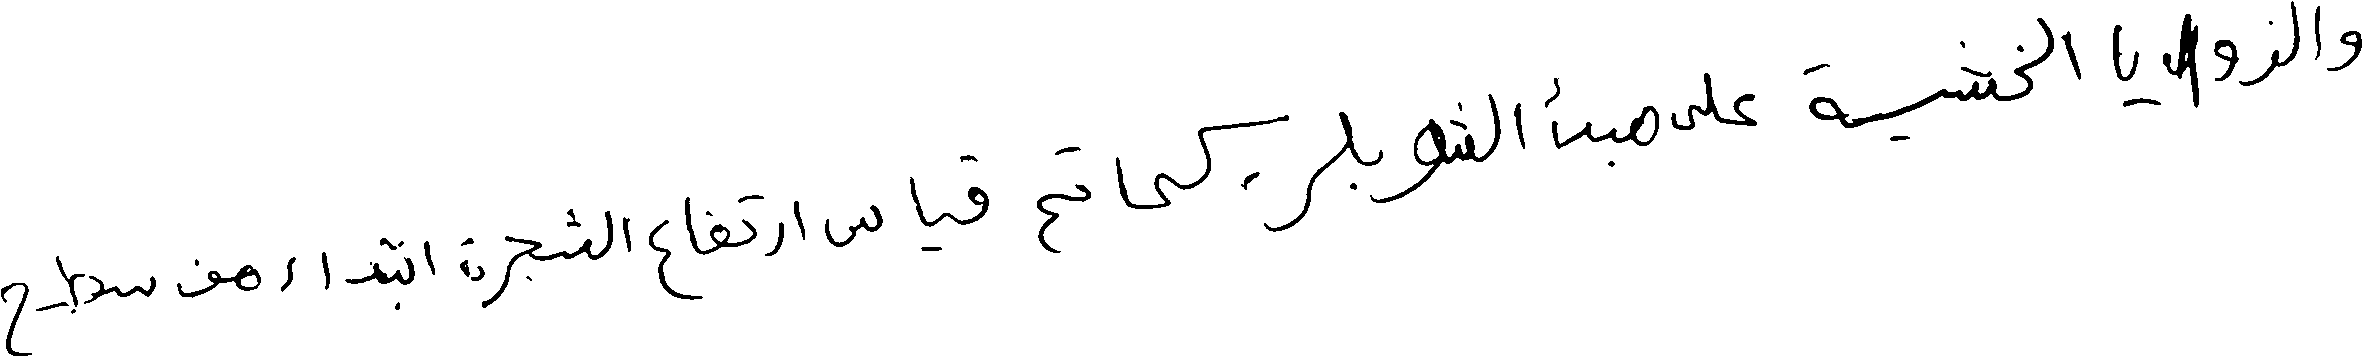 والزوايا الخشبية على مبدأ الشوبلر كما تم قياس ارتفاع الشجرة ابتداء من سطح